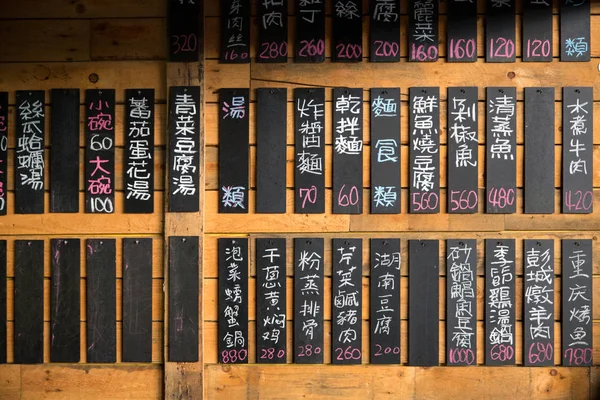 類
120
120
160
麗菜 160
腐 200
絲 200
丁 260
肉 280
肉丝 160
320
水煮牛肉 420
清蒸魚 480
剁椒魚 560
鮮魚燒豆腐 560
麵食類
乾拌麵 60
炸醬麵 70
湯類
青菜豆腐湯
蕃茄蛋花湯
小碗60大碗100
絲瓜蛤蠣湯
重庆烤魚 780
彭城燉羊肉 680
季節鷄湯鍋 680
砂鍋魚豆腐 1000
湖南豆腐 200
芹菜鹹豬肉 260
粉蒸排骨 280
干蔥黃焖鸡 280
泡菜螃蟹鍋 880